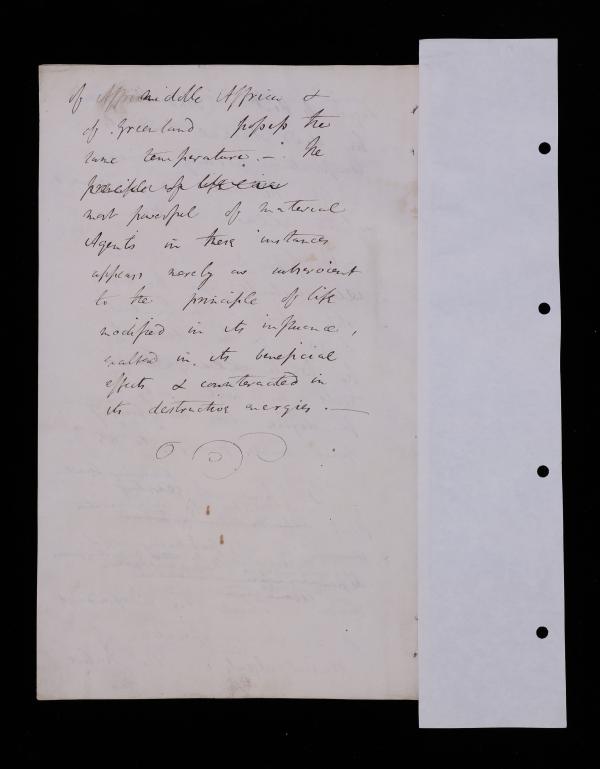 of Affri middle Affrica &
of Greenland possess the
same temperature. – The
principle of life
most powerful of material
Agents in these instances
appears merely as subservient
to the principle of life
modified in its influence,
exalted in its beneficial
effects & counteracted in
its destructive energies. —